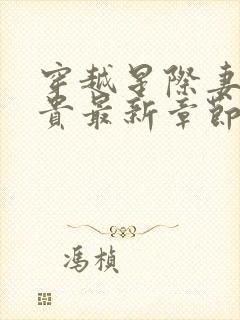 穿越星際妻
貴最新章節
馮楨